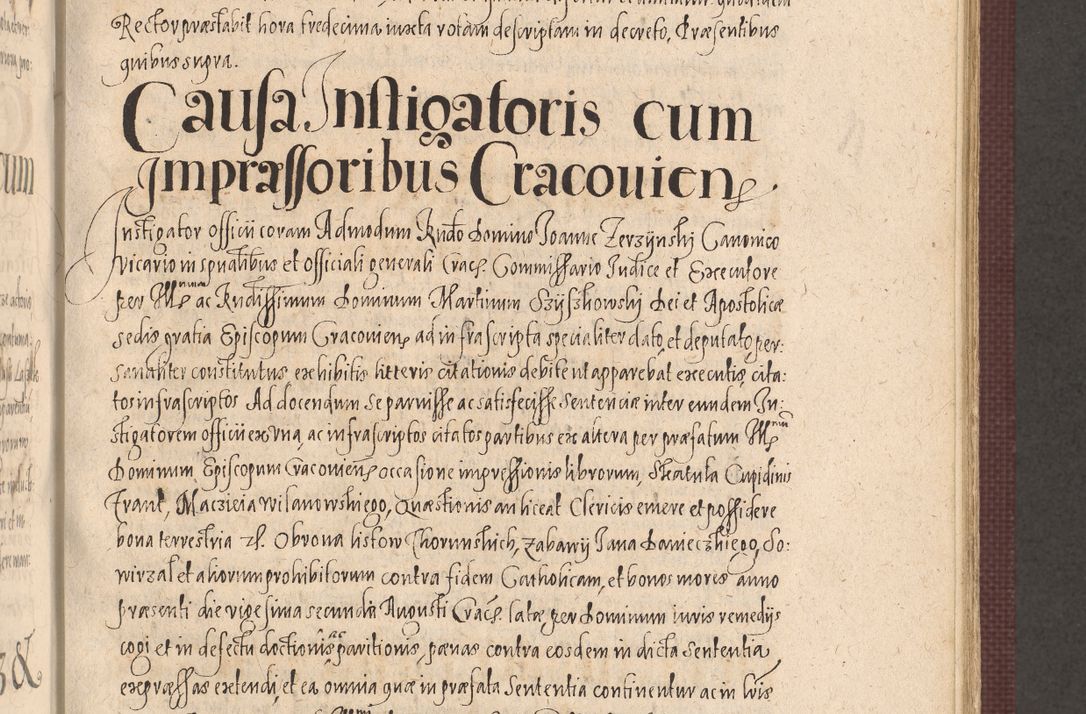 Rector præstabit hora tredecima iuxta rotam descriptam in decreto, Præsentibus
quibus supra.
Causa Instigatoris cum
Impræssoribus Cracouien
Instigator officii coram Admodum Rndo Domino Joanne Zerzynski Canonico
vicario in spualibus et Officiali generali Crac. Commissario Judice et Executore
per Illm ac Rndissimum Dominum Martinum Szyszkowski Dei et Apostolicæ
sedis gratia Episcopum Cracouien ad infrascripta specialiter dato, et deputato per:
sonaliter constitutus exhibitis litteris citationis debite ut apparebat executis cita:
tos infrascriptos Ad docendum se paruisse ac satisfecisse sententiæ inter eundem In:
stigatorem officii ex vna, ac infrascriptos citatos partibus ex altera per præfatum Illm
Dominum Episcopum Cracouien occasione impressionis librorum, Skatula Cupidinis
Frant, Macieia Wilanowskiego, Quæstionis an liceat Clericis emere et possidere
bona terrestria Obrona listow Thorunskich, Zabawy Jana Danieczkiego, So:
wirzal et aliorum prohibitorum contra fidem Catholicam, et bonos mores anno
præsenti die vigesima secunda Augusti Crac. latæ per Dominum iuris remedys
cogi et in defectu doctionis ac paritionis, pænas contra eosdem in dicta sententia
expræssas extendi, et ea omnia quæ in præfata sententia continentur ac in lris